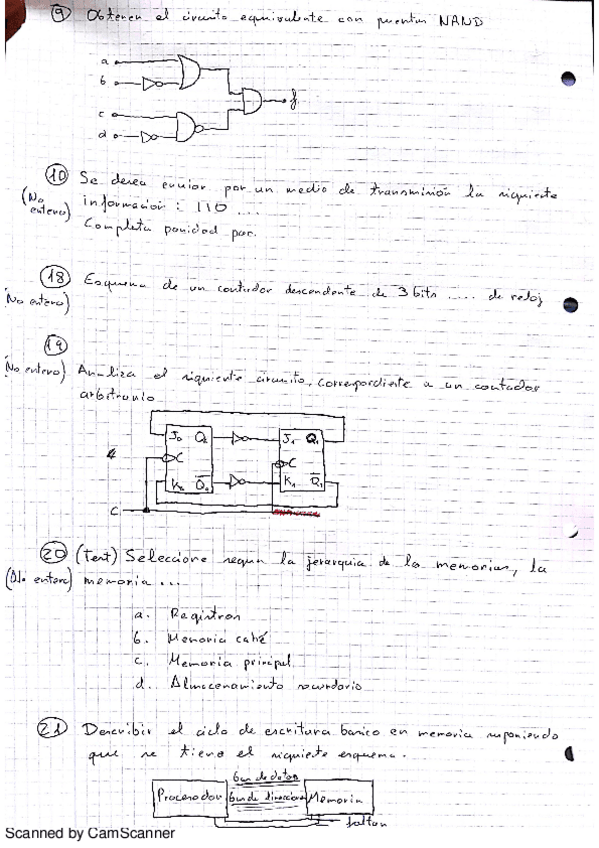 9 Obtener el circuito equivalente con puertas NAND
a
b
f
c
d
10 Se desea enviar por un medio de transmisión la siguiente
(No entero) información : 110 ...
Completa paridad par.
18 Esquema de un contador descendente de 3 bits ..... de reloj
(No entero)
19
(No entero) Analiza el siguiente circuito, correspondiente a un contador
arbitrario
J0 Q0 J1 Q1
C C
K0 Q0 K1 Q1
C
20 (Test) Seleccione según la jerarquia de las memorias, la
(No entero) memoria ...
a. Registros
b. Memoria caché
c. Memoria principal
d. Almacenamiento secundario
21 Describir el ciclo de escritura basico en memoria suponiendo
que se tiene el siguiente esquema.
bus de datos
Procesador bus de direcciones Memoria
faltan
Scanned by CamScanner